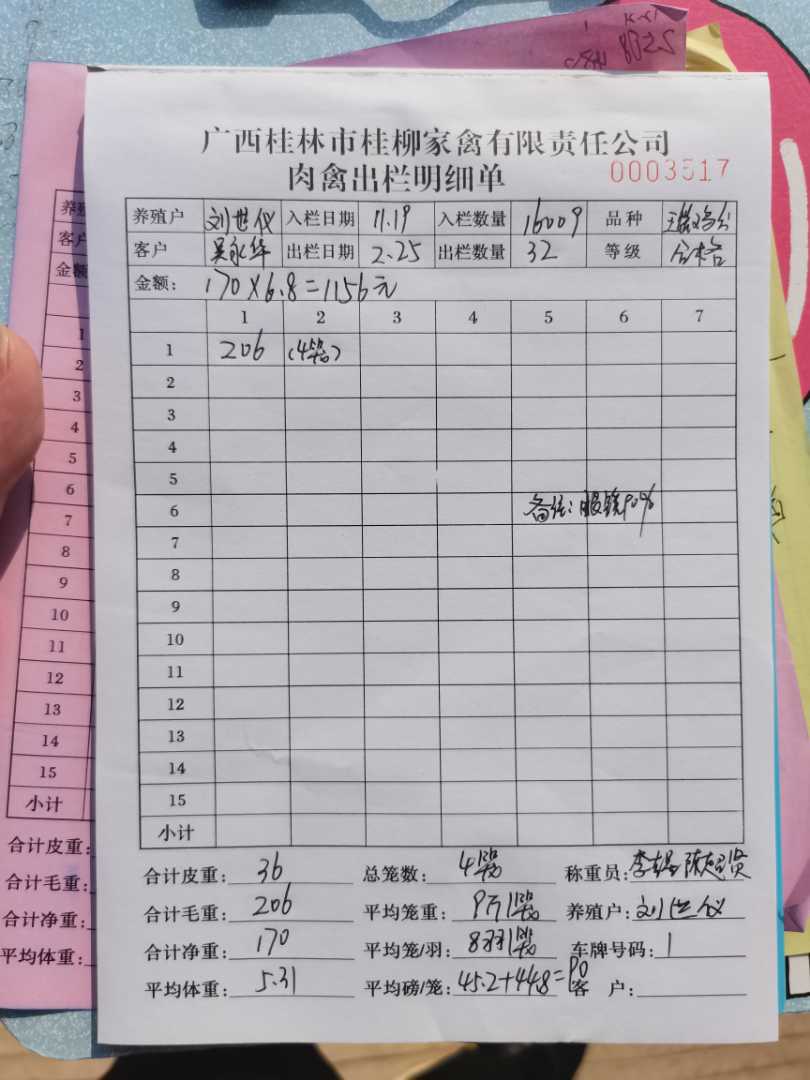 广西桂林市桂柳家禽有限责任公司
肉禽出栏明细单 0003517
养殖户 刘世仪 入栏日期 11.19 入栏数量 16009 品种
客户 吴永华 出栏日期 2.25 出栏数量 32 等级 合格
金额: 170×6.8=1156元
1 2 3 4 5 6 7
1 206 (4笼)
2
3
4
5
6 备注:眼镜90%
7
8
9
10
11
12
13
14
15
小计
合计皮重: 36 总笼数: 4笼 称重员:
合计毛重: 206 平均笼重: 9斤/笼 养殖户: 刘世仪
合计净重: 170 平均笼/羽: 8羽/笼 车牌号码: 1
平均体重: 5.31 平均磅/笼: 45.2+44.8=90 客 户:
养
客户
金额
1
2
3
4
5
6
7
8
9
10
11
12
13
14
15
小计
合计皮重:
合计毛重:
合计净重:
平均体重:
8025